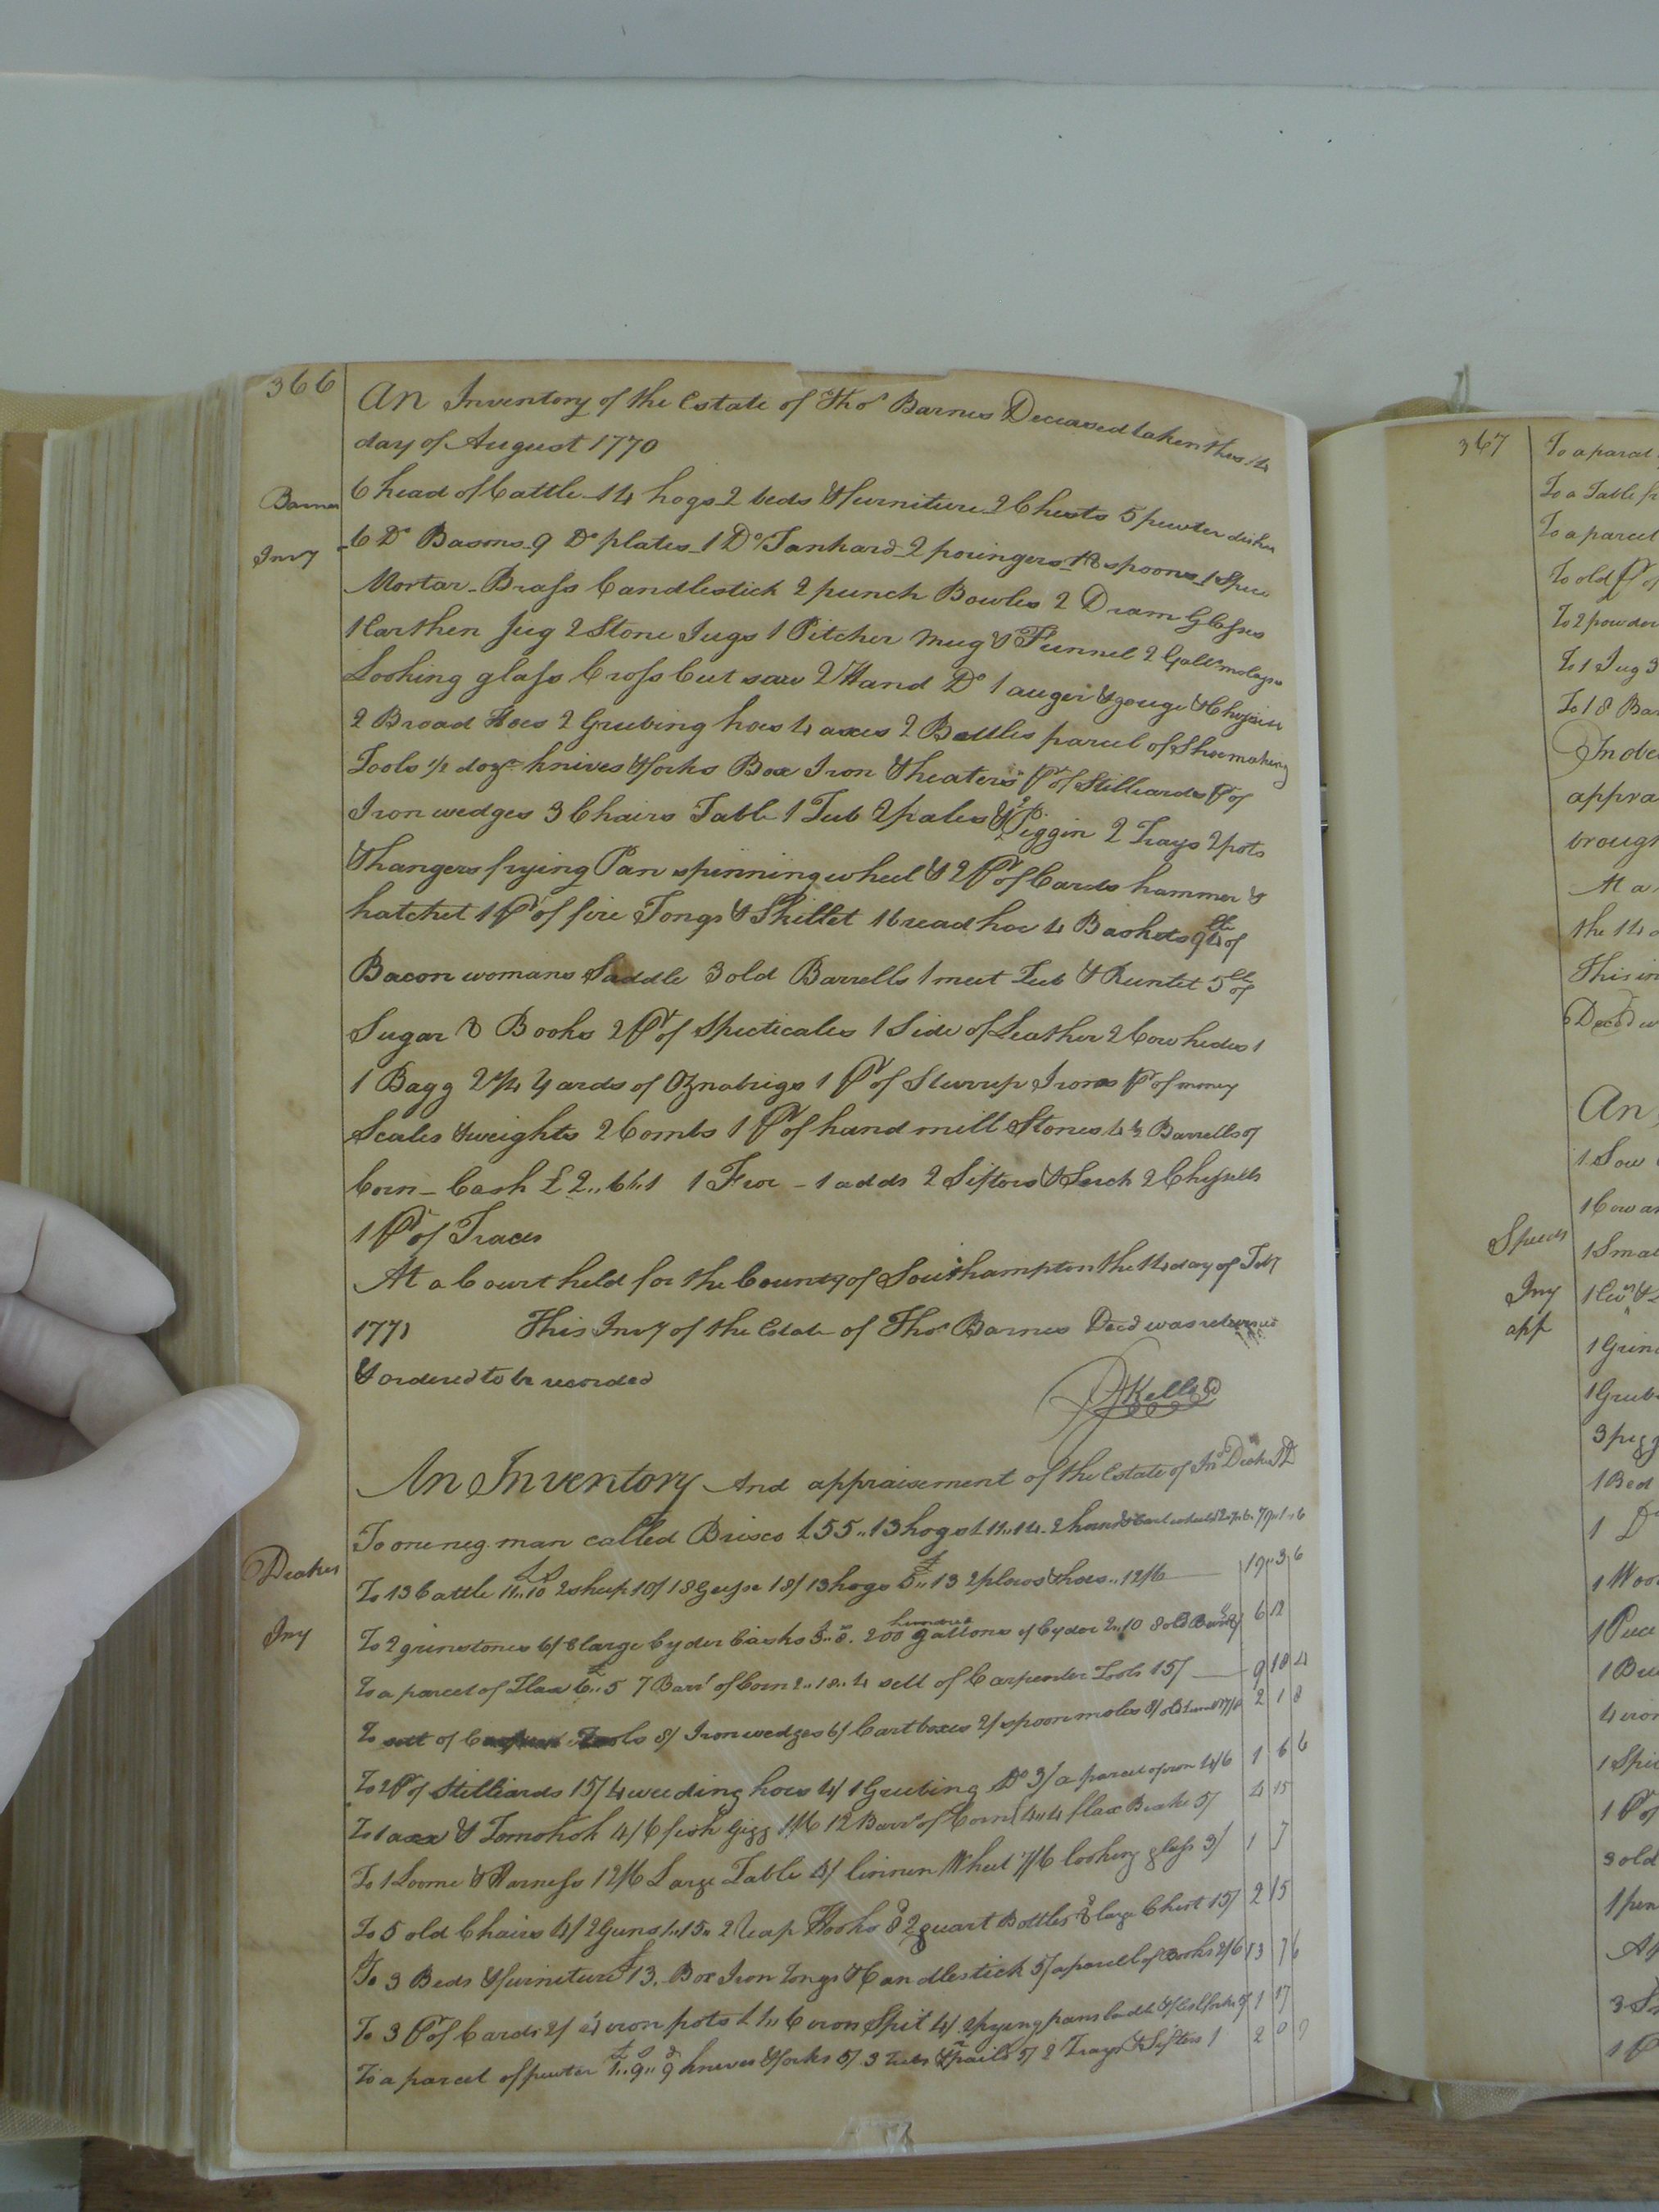 366
An Inventory of the Estate of Thos Barnes Deceased taken this 14
day of August 1770
Barnes
Invy
6 head of Cattle 14 hogs 2 beds & furniture 2 Chests 5 pewter dishes
6 Do Basons 9 Do plates 1 Do Tankard 2 poringers 18 spoons 1 Spice
Mortar Brass Candlestick 2 punch Bowles 2 Dram Glasses
1 Earthen Jug 2 Stone Jugs 1 Pitcher Mug & Funnel 2 Galls molases
Looking glass Cross Cut saw 2 Hand Do 1 auger & gouge & Chyssell
2 Broad Hoes 2 Grubing hoes 4 axes 2 Bottles parcel of Shoemaking
Tools 1/2 dozn knives & forks Box Iron & heaters Pr of Stilliards Pr of
Iron wedges 3 Chairs Table 1 Tub 2 pales & Piggin 2 Trays 2 pots
& hangers frying Pan spinning wheel & 2 Pr of Cards hammer &
hatchet 1 Pr of fire Tongs & Skillet 1 broad hoe 4 Baskets 94 lb of
Bacon womans Saddle 3 old Barrells 1 meet Tub & Runlet 5 lb of
Sugar 8 Books 2 Pr of Specticales 1 Side of Leather 2 Cow hides 1
1 Bagg 2 3/4 Yards of Oznabrigs 1 Pr of Sturrup Irons Pr of money
Scales & weights 2 Combs 1 Pr of hand mill Stones 4 1/2 Barrells of
Corn - Cash £2,,6,,1 1 Froe - 1 adds 2 Siftors & Serch 2 Chyssells
1 Pr of Traces
At a Court held for the County of Southampton the 14 day of Feby
1771 This Invy of the Estate of Thos Barnes Decd was returned
& ordered to be recorded
RKello
An Inventory And appraisement of the Estate of Jno Deakes
Deakes
Iny
To one neg. man called Brisco £55,, 13 hogs £11,,14. 2
To 13 Cattle 11,,10 2 sheep 10/ 18 Geese 18/ 13 hogs 5,,13 2 plows & hoes,, 12/6 19,,3 6
To 2 grinstones 6/ 8 large Cyder Casks 200 hundred gallons of Cyder 2,,10 8 old 6 12
To a parcel of Flax 6,,5 7 Barrs of Corn 2,,18,,4 sett of Carpenter Tools 15/ 9 18 4
To sett of Tools 8/ Iron wedges 6/ Cart boxes 2/ spoon moles 8/ 2 1 8
To 2 Pr of Stilliards 15/ 4 weeding hoes 4/ 1 Grubing Do 3/ a parcel of iron 4/6 1 6 6
To 1 axe & Tomohok 4/6 fish Gigg 1/6 12 Barrs of Corn 4,,4 flax Brake 5/ 4 15
To 1 Loome & Harness 12/6 Large Table 4/ linnen Wheel 7/6 looking glass 3/ 1 7
To 5 old Chairs 4/ 2 Guns 1,,15,, 2 Reap Hooks 8 2 quart Bottles large Chest 15/ 2 15
To 3 Beds & furniture £13,, Box Iron Tongs & Candlestick 5/ a parcel of Books 2/6 13 7 6
To 3 Pr of Cards 2/ 4 iron pots £1,,6 iron Spit 4/ 2 frying pans 1 17
To a parcel of pewter 1,,9,,9 knives & forks 5/ 3 Tubs & pails 5/ 2 Trays & Sifters 1 2 0 9
367
To a parcel
To a Table
To a parcel
To old Pr of
To 2 powder
To 1 Jug 3
To 18 Bar
In obe
appra
brough
At a
the 14
This in
Decd w
An
Speeds
Iny
app
1 Sow
1 Cow an
1 Smal
1 Grin
1 Grub
3 pigg
1 Bed
1 Do
1 Woo
1 Pece
4 iron
1 Spi
1 Pr of
3 old